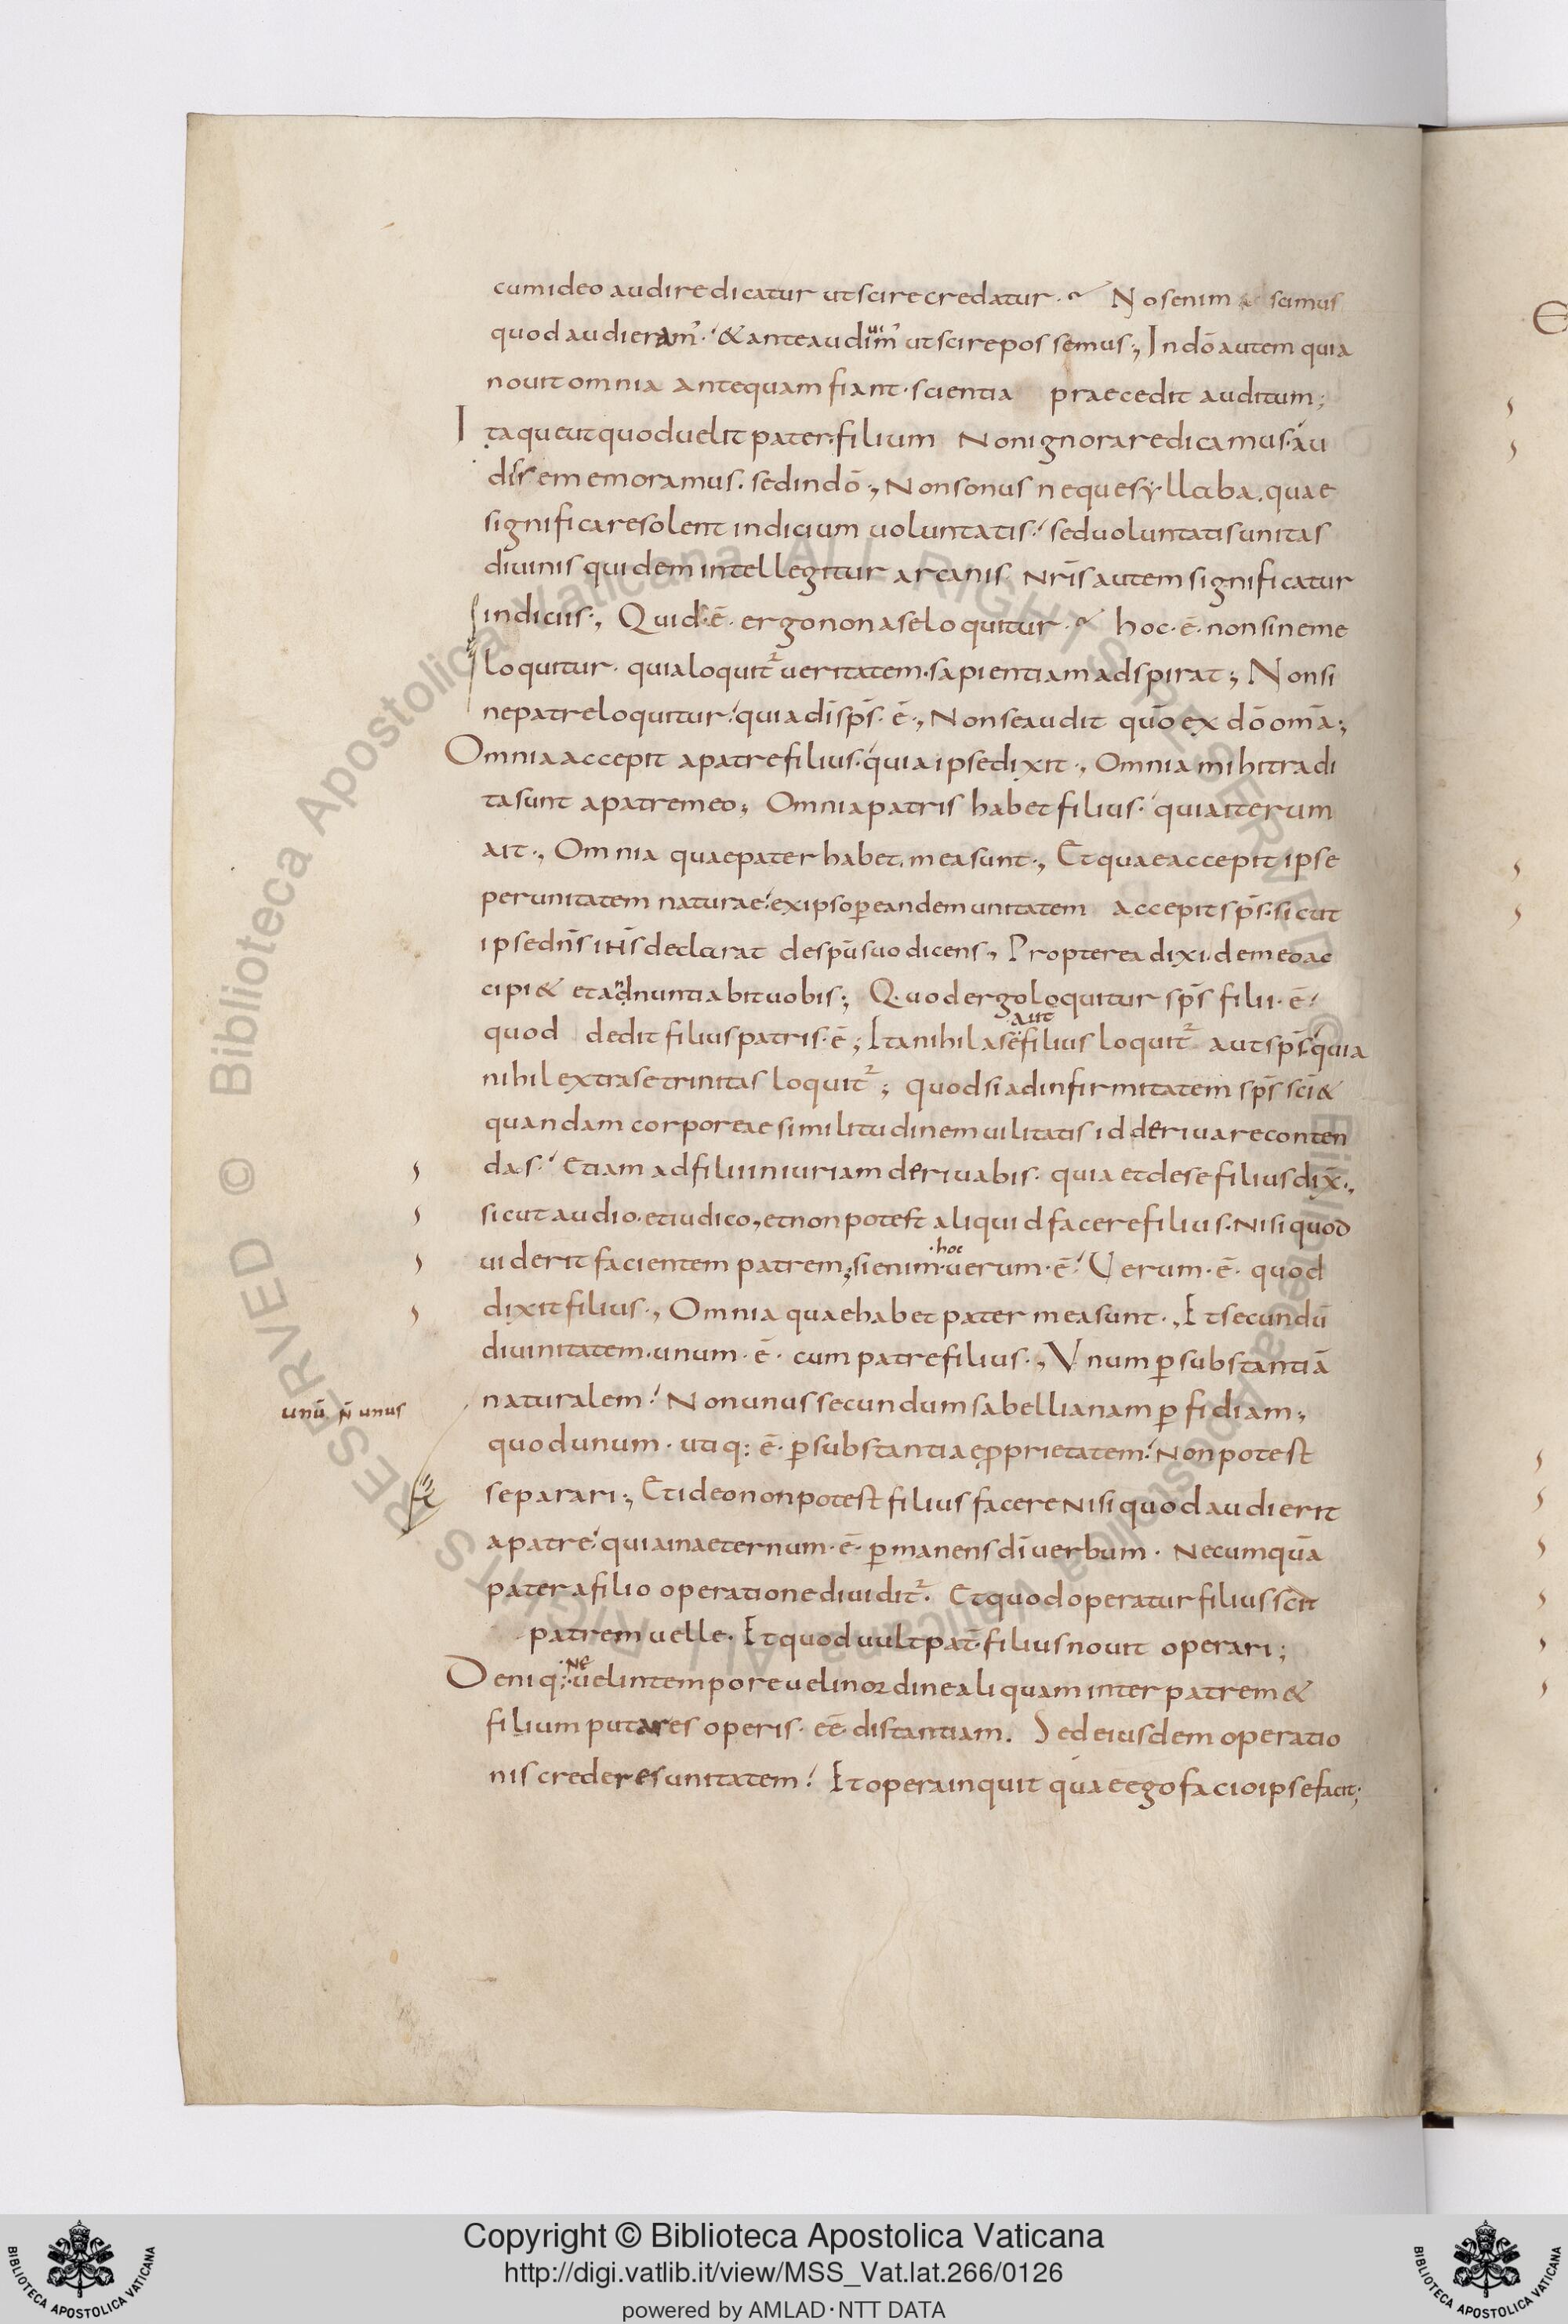 cum ideo audire dicatur ut scire credatur · Nos enim scimus
quod audieram᾽ · & ante audiuim᾽ ut scire possemus ·, In dō autem quia
nouit omnia antequam fiant · scientia praecedit auditum;
Itaque ut quod uelit pater · filium Non ignorare dicamus · au
dire memoramus · sed in dō ·, Non sonus neque syllaba · quae
significare solent indicium uoluntatis · sed uoluntatis unitas
diuinis quidem intellegitur arcanis Nrīs autem significatur
indiciis ·, Quid · ē · ergo non a se loquitur · hoc · ē · non sine me
loquitur · quia loquit² ueritatem · sapientiam adspirat ; Non si
ne patre loquitur · quia dī sp̄s · ē ·, Non se audit quō ex dō om̄a ;
Omnia accepit a patre filius · quia ipse dixit ·, Omnia mihi tradi
ta sunt a patre meo ; Omnia patris habet filius · quia iterum
ait ·, Omnia quae pater habet · mea sunt ·, Et quae accepit ipse
per unitatem naturae · ex ipso p̄ eandem unitatem accepit sp̄s · sicut
ipse dn̄s ih̄s declarat de sp̄u suo dicens ·, Propterea dixi · de meo ac
cipi& et adnuntiabit uobis ; Quod ergo loquitur sp̄s filii · ē ·
aut
quod dedit filius patris · ē ; Ita nihil a se filius loquit² aut sp̄s · quia
nihil extra se trinitas loquit² ; quod si ad infirmitatem sp̄s scī &
quandam corporeae similitudinem uilitatis id deriuare conten
das · Etiam ad filii iniuriam deriuabis · quia et de se filius dix̄ ·,
sicut audio · et iudico, et non potest aliquid facere filius · Nisi quod
hoc
uiderit facientem patrem ; si enim · uerum · ē · Verum · ē · quod
dixit filius ·, Omnia quae habet pater mea sunt ·, Et secundū
diuinitatem · unum · ē · cum patre filius ·, Vnum p̄ substantiā
unū n̄ unus
naturalem · Non unus secundum sabellianam p̄fidiam ;
quod unum · utiq: ē · p̄ substantiae p̄prietatem · Non potest
separari ; Et ideo non potest filius facere Nisi quod audierit
a patre · quia in aeternum · ē · p̄manens dī uerbum · Nec umquā
pater a filio operatione diuidit² · Et quod operatur filius scit
patrem uelle · Et quod uult pat̄ · filius nouit operari ;
Ne
Deniq; · uel in tempore uel in ordine aliquam inter patrem &
filium putares operis · eē distantiam · Sed eiusdem operatio
nis crederes unitatem · Et opera inquit quae ego facio ipse facit ;
Copyright © Biblioteca Apostolica Vaticana
http://digi.vatlib.it/view/MSS_Vat.lat.266/0126
powered by AMLAD·NTT DATA
BIBLIOTECA APOSTOLICA VATICANA
BIBLIOTECA APOSTOLICA VATICANA